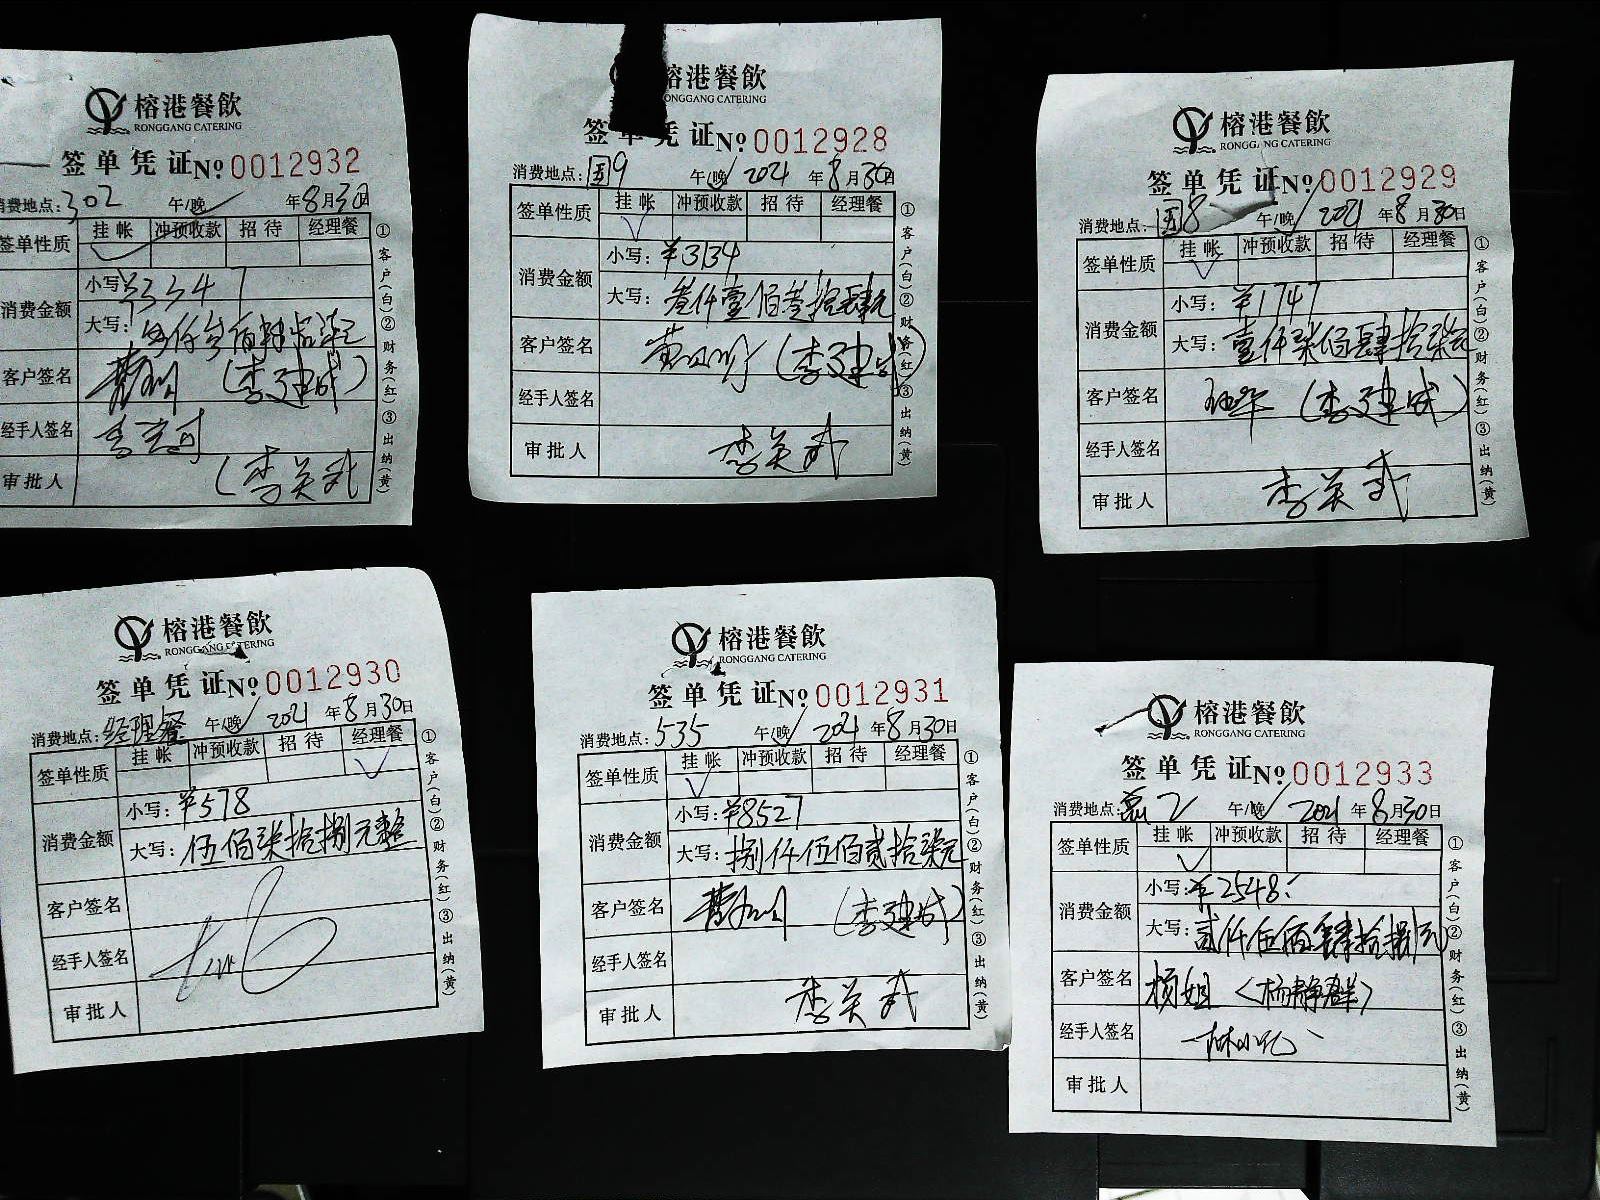 榕港餐飲
RONGGANG CATERING
签单凭证 №0012932
消费地点:302 午/晚 年8月30日
签单性质 挂帐 冲预收款 招待 经理餐
消费金额 小写:¥3347
大写:叁仟叁佰肆拾柒元
客户签名 (李建成)
经手人签名
审批人 (李关武
①客户(白)②财务(红)③出纳(黄)
榕港餐飲
RONGGANG CATERING
签单凭证 №0012928
消费地点:国9 午/晚 2021年8月30日
签单性质 挂帐 冲预收款 招待 经理餐
消费金额 小写:¥3134
大写:叁仟壹佰叁拾肆元
客户签名 (李建成)
经手人签名
审批人 李关武
①客户(白)②财务(红)③出纳(黄)
榕港餐飲
RONGGANG CATERING
签单凭证 №0012929
消费地点:国8 午/晚 2021年8月30日
签单性质 挂帐 冲预收款 招待 经理餐
消费金额 小写:¥1747
大写:壹仟柒佰肆拾柒元
客户签名 (李建成)
经手人签名
审批人 李关武
①客户(白)②财务(红)③出纳(黄)
榕港餐飲
RONGGANG CATERING
签单凭证 №0012930
消费地点:经理餐 午/晚 2021年8月30日
签单性质 挂帐 冲预收款 招待 经理餐
消费金额 小写:¥578
大写:伍佰柒拾捌元整
客户签名
经手人签名
审批人
①客户(白)②财务(红)③出纳(黄)
榕港餐飲
RONGGANG CATERING
签单凭证 №0012931
消费地点:535 午/晚 2021年8月30日
签单性质 挂帐 冲预收款 招待 经理餐
消费金额 小写:¥8527
大写:捌仟伍佰贰拾柒元
客户签名 (李建成)
经手人签名
审批人 李关武
①客户(白)②财务(红)③出纳(黄)
榕港餐飲
RONGGANG CATERING
签单凭证 №0012933
消费地点: 2 午/晚 2021年8月30日
签单性质 挂帐 冲预收款 招待 经理餐
消费金额 小写:¥2548
大写:贰仟伍佰肆拾捌元
客户签名 杨姐(杨静群)
经手人签名 林小亿
审批人
①客户(白)②财务(红)③出纳(黄)